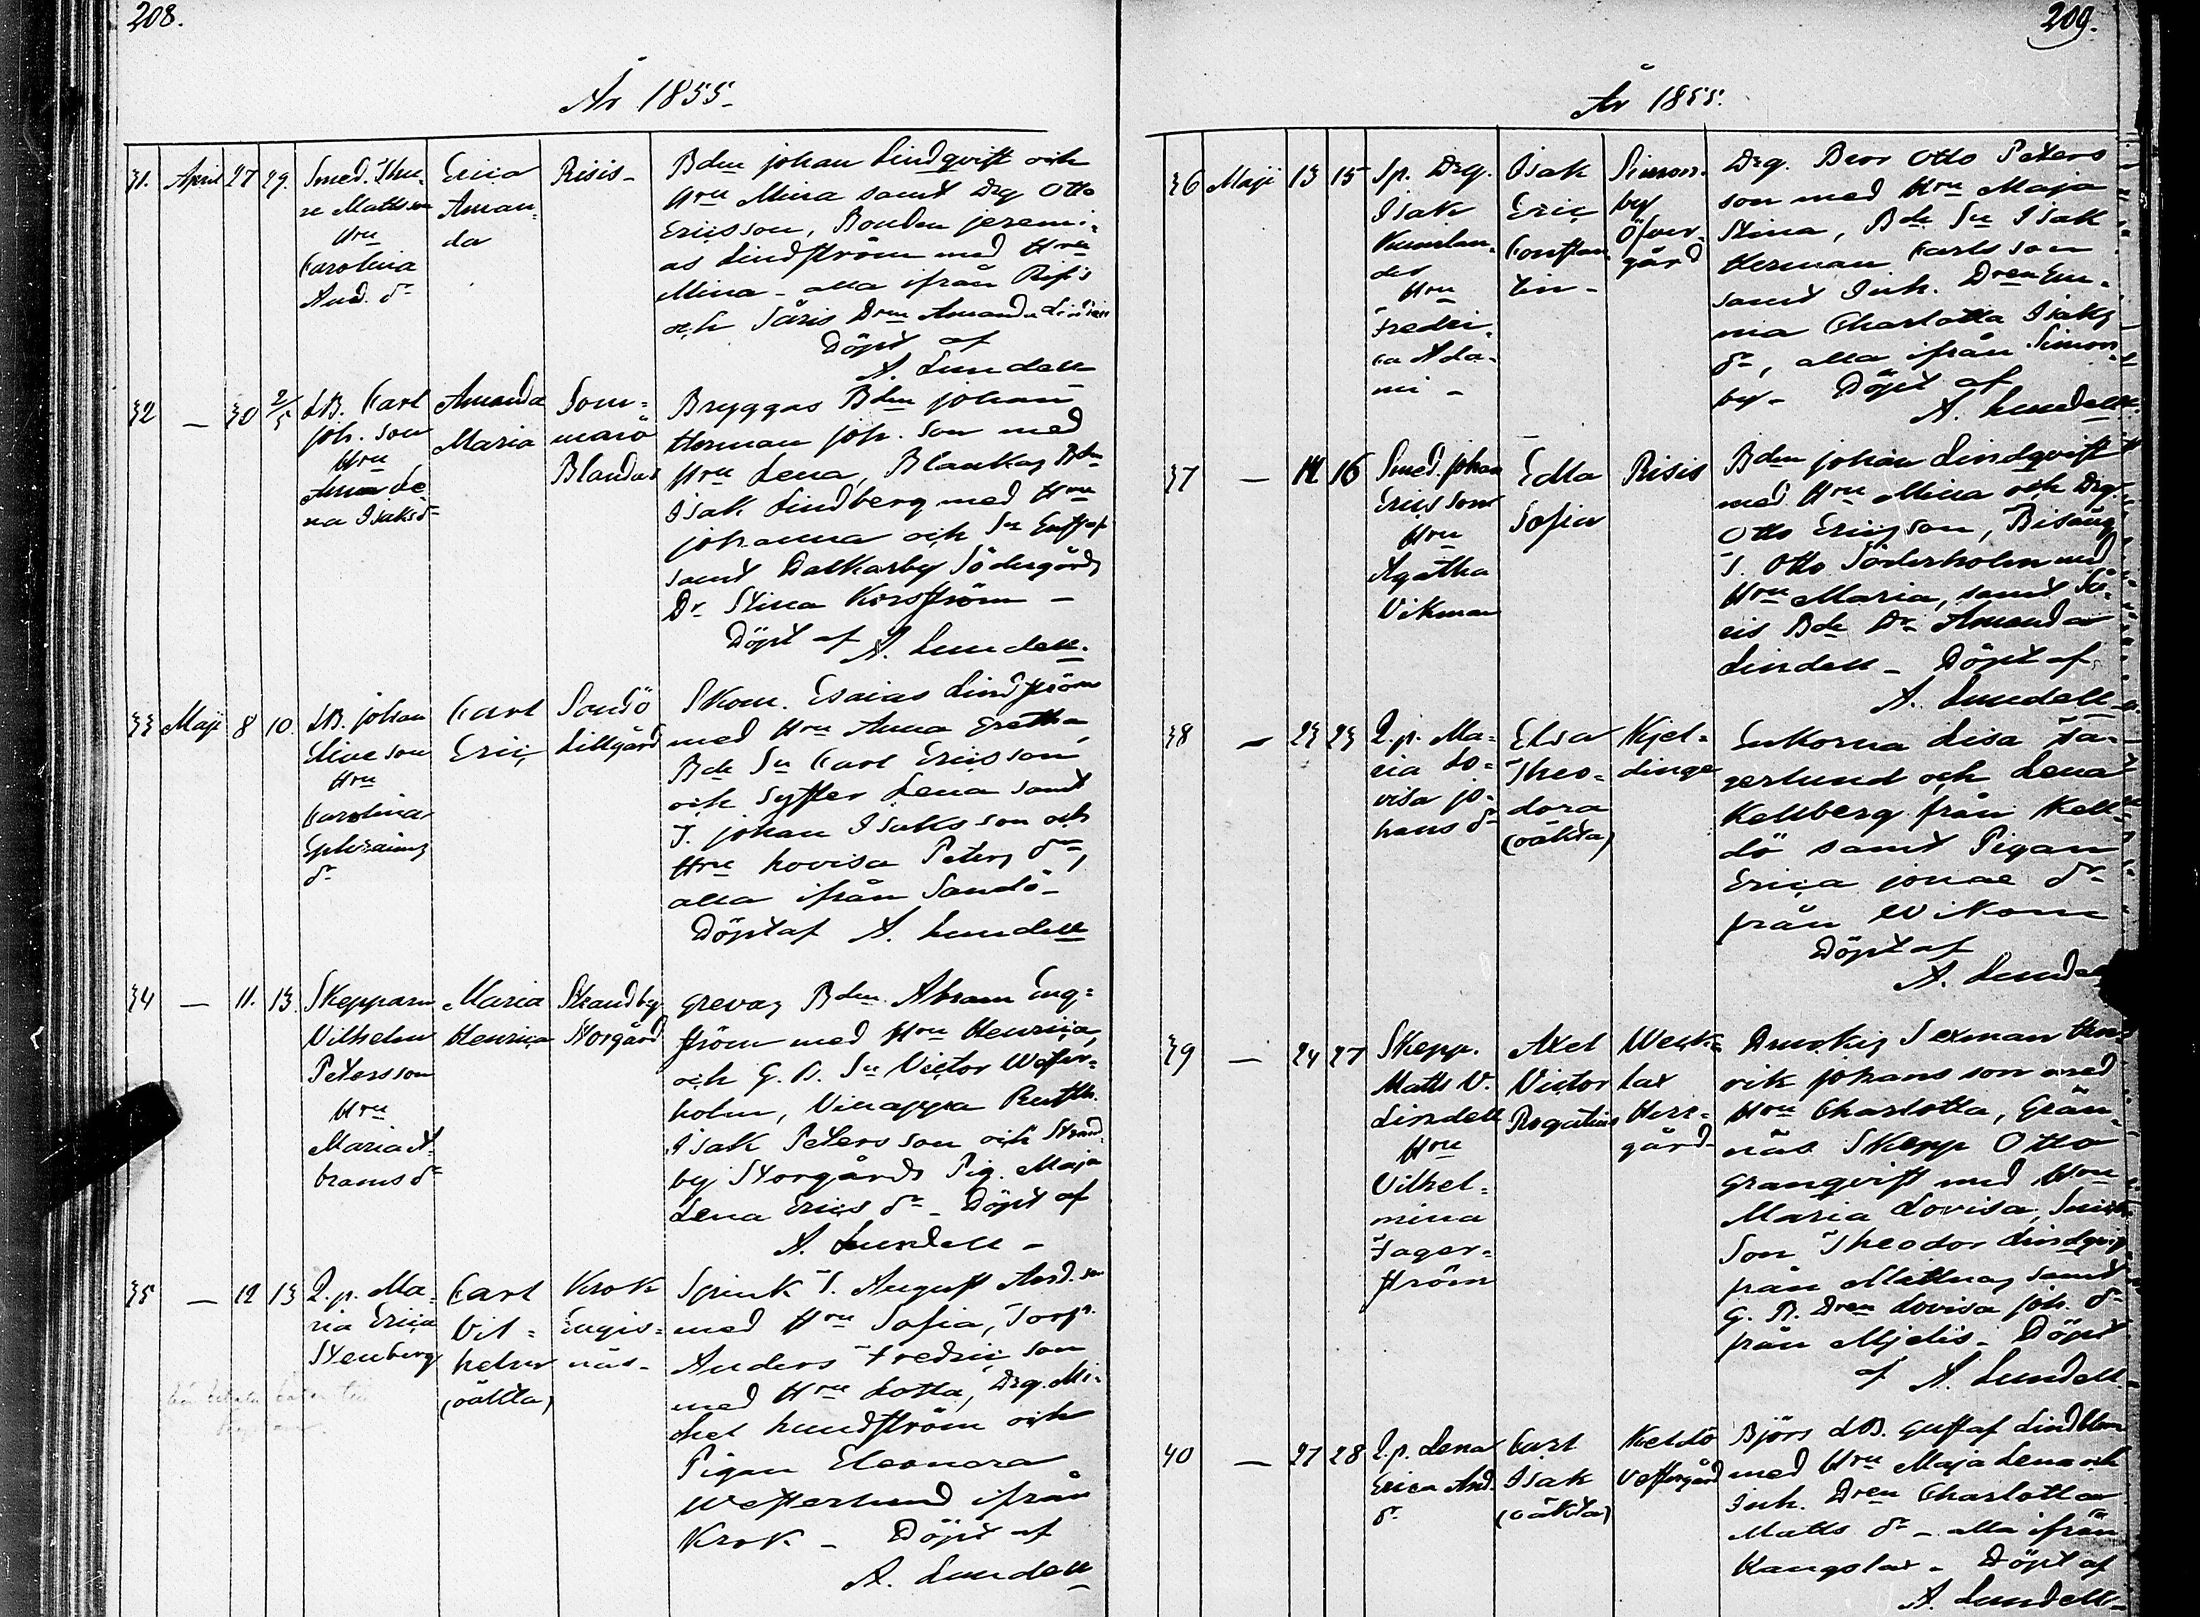 208.
År 1855.
31. April 27 29.
Smed. Thu-
re Mattsson
Hru
Carolina
And. dr
Erica
Aman-
da
Risis-
Bdn johan Lindqvist och
Hru Mina samt Drg Otto
Ericsson, Bonden jeremi-
as Lindström med Hru
Mina - alla ifrån Risis
och Såris Dren Amanda
Döpt af
A. Lundell
32 - 30 2/5
LB. Carl
joh. son
Hru
Anna Le-
na Isaksdr
Amanda
Maria
Som-
marö
Blandas
Bryggas Bdn johan
Herman joh. son med
Hru Lena, Bdn
Isak Lindberg med Hru
johanna och Sn Gustaf
samt Dalkarby Södergårds
Dr Stina Korsström -
Döpt af
A. Lundell.
33 Maji 8 10.
LB. johan
Elieson
Hru
Carolina
Ephraims
dr
Carl
Eric
Sandö
Lillgård
Skom. Esaias Lindström
med Hru Anna Gretha,
Bde Sn Carl Ericsson
och Syster Lena samt
T. johan Isaksson och
Hru Lovisa Peters dr,
alla ifrån Sandö-
Döpt af A. Lundell
34 - 11. 13.
Skepparn
Vilhelm
Petersson
Hru
Maria A-
brams dr
Maria
Henrica
Strandby
Storgård
Grevas Bdn. Abram Eng-
ström med Hru Henrica,
och G. B. Sn Victor Wester-
holm, Rusth.
Isak Petersson och Strand-
by Storgårds Pig. Maja
Lena Erics dr - Döpt af
A. Lundell -
35 - 12 13
Q. p. Ma-
ria Erica
Stenberg
Carl
Vil-
helm
(oäkta)
Krok
Engis-
näs-
Spink T. August And. son
med Hru Sofia, Torp.
Anders Fredric son
med Hru Lotta, Drg. Mi-
chel Lundström och
Pigan Eleonora
Westerlund ifrån
Krok - Döpt af
A. Lundell
209.
År 1855.
36 Maji 13 15
Sp. Drg.
Isak
Kumlan-
der
Hru
Fredri-
ca Ada-
mi -
Isak
Eric
Constan
tin -
Simon-
by
Öfver-
gård
Drg. Bror Otto Peters
son med Hru Maja
Stina, Bde Sn Isak
Herman Carlsson
samt Inh. Dren Em-
ma Charlotta Isaks
dr, alla ifrån Simon-
by - Döpt af
A. Lundell.
37 - 14 16
Smed. johan
Ericsson
Hru
Agatha
Vikman
Edla
Sofia
Risis
Bdn johan Lindqvist
med Hru Mina och Drg.
Otto Ericsson, Bisäng
T. Otto Söderholm med
Hru Maria, samt Så-
ris Bde Dr Amanda
Lindell - Döpt af
A. Lundell
38 - 23 23
Q. p. Ma-
ria Lo-
visa jo-
hans dr
Elsa
Theo-
dora
(oäkta)
Kjel-
dinge
Enkorna Lisa Fa-
gerlund och Lena
Kellberg från Kell-
dö samt Pigan
Erica jonae dr
från Wikom
Döpt af
A. Lundell
39 - 24 27
Skepp.
Matts V.
Lindell
Hru
Vilhel-
mina
Fager-
ström
Axel
Victor
Rogatius
West-
lax
Herr-
gård-
Sexman Hen-
rik johansson med
Hru Charlotta, Grän-
näs Skepp Otto
Granqvist med Hru
Maria Lovisa,
Son Theodor Lindqvist
från samt
G. B. Dren Lovisa joh. dr
från Mjelis - Döpt
af A. Lundell-
40 - 27 28
Q. p. Lena
Erica And.
dr
Carl
Isak
(oäkta)
Keldö
Vestergård
Björs LB. Gustaf Lindblom
med Hru Maja Lena och
Inh. Dren Charlotta
Matts dr - alla ifrån
Hangslax - Döpt af
A. Lundell-